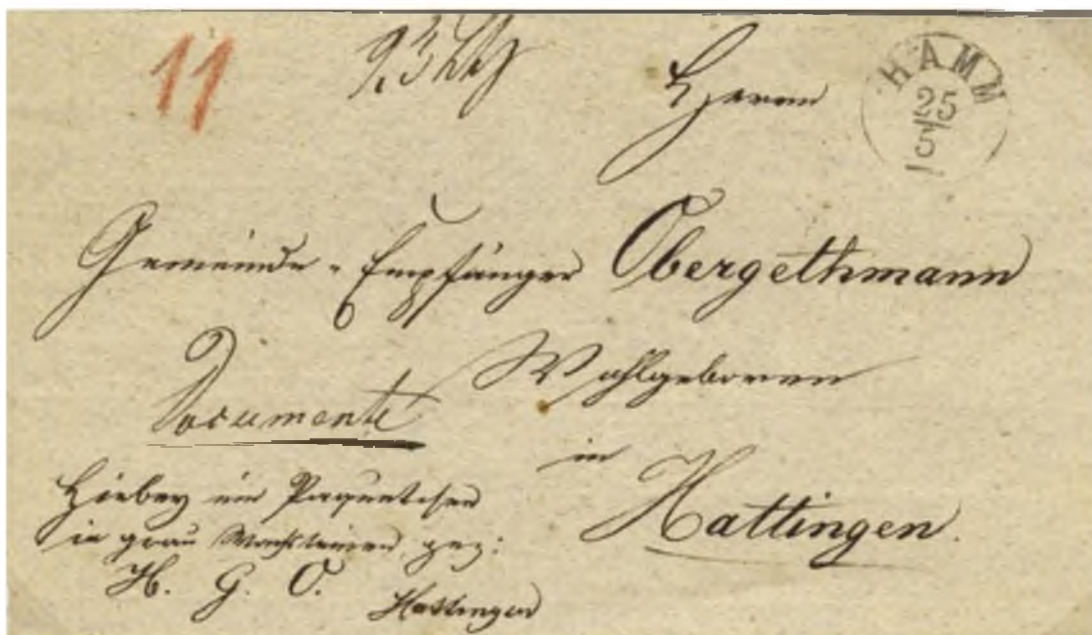 11
Herrn
HAMM
25
5
Gemeinde-Empfänger Obergethmann
Wohlgeboren
Documente
in
Hattingen.
Hiebey ein Paquetchen
in grau Wachsleinen gez:
H. G. O.
Hattingen